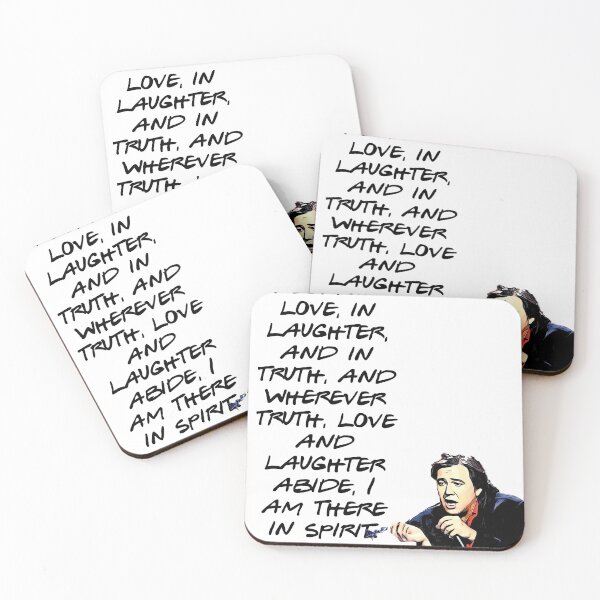 LOVE, IN
LAUGHTER,
AND IN
TRUTH, AND
WHEREVER
LOVE, IN
LAUGHTER,
AND IN
TRUTH, AND
WHEREVER
TRUTH, LOVE
AND
LAUGHTER
LOVE, IN
LAUGHTER,
AND IN
TRUTH, AND
WHEREVER
TRUTH, LOVE
AND
LAUGHTER
ABIDE, I
AM THERE
IN SPIRIT.
LOVE, IN
LAUGHTER,
AND IN
TRUTH, AND
WHEREVER
TRUTH, LOVE
AND
LAUGHTER
ABIDE, I
AM THERE
IN SPIRIT.